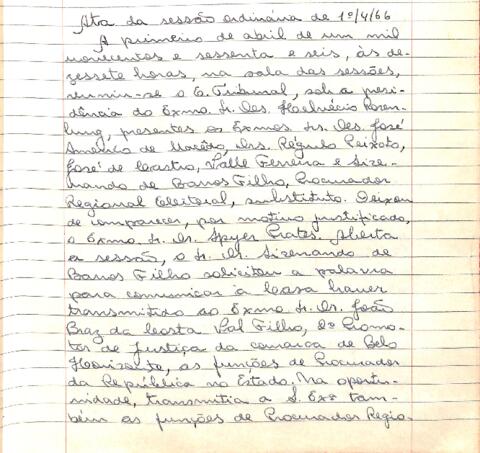 Ata da sessão ordinária de 1º/4/66
A primeiro de abril de um mil
novecentos e sessenta e seis, às de-
zessete horas, na sala das sessões,
reuniu-se o E. Tribunal, sob a presi-
dência do Exmo. Sr. Des. Helvécio Rosen-
burg, presentes os Exmos. Srs. Des. José
Américo de Macêdo, Drs. Régulo Peixoto,
José de Castro, Valle Ferreira e Size-
nando de Barros Filho, Procurador
Regional Eleitoral, substituto. Deixou
de comparecer, por motivo justificado,
o Exmo. Sr. Dr. Spyer Prates. Aberta
a sessão, o Sr. Dr. Sizenando de
Barros Filho solicitou a palavra
para comunicar à Casa haver
transmitido ao Exmo. Sr. Dr. João
Braz da Costa Val Filho, 2º Promo-
tor de Justiça da comarca de Belo
Horizonte, as funções de Procurador
da República no Estado. Na oportu-
nidade, transmitia a S. Exª tam-
bém as funções de Procurador Regio-